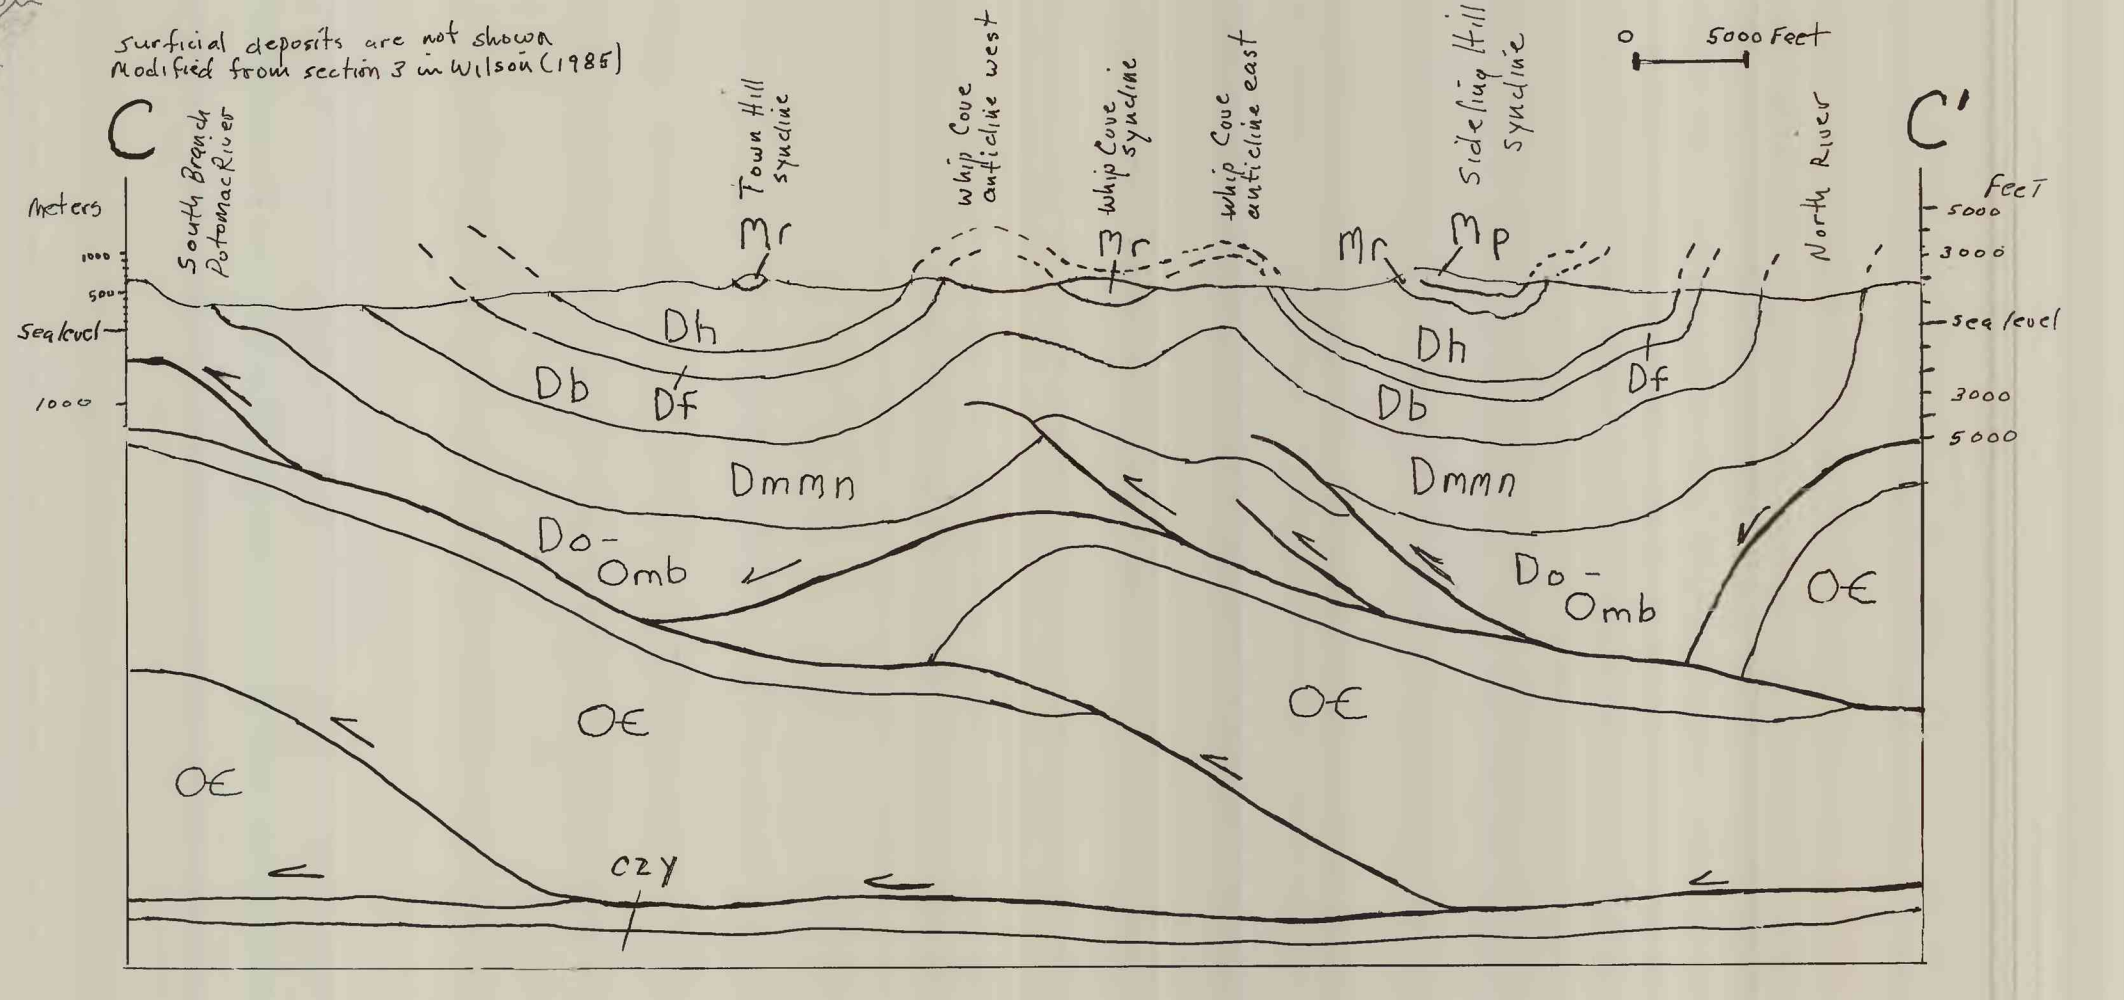 Surficial deposits are not shown
Modified from section 3 in Wilson (1985)
0 5000 Feet
C
C'
South Branch
Potomac River
Town Hill
syncline
Whip Cove
anticline west
Whip Cove
syncline
Whip Cove
anticline east
Sideling Hill
syncline
North River
Meters
1000
500
Sea level
1000
Feet
5000
3000
Sea level
3000
5000
Mr
Mr
Mr
Mp
Dh
Dh
Db
Df
Db
Df
Dmmn
Dmmn
Do-
Omb
Do-
Omb
OЄ
OЄ
OЄ
OЄ
CZY